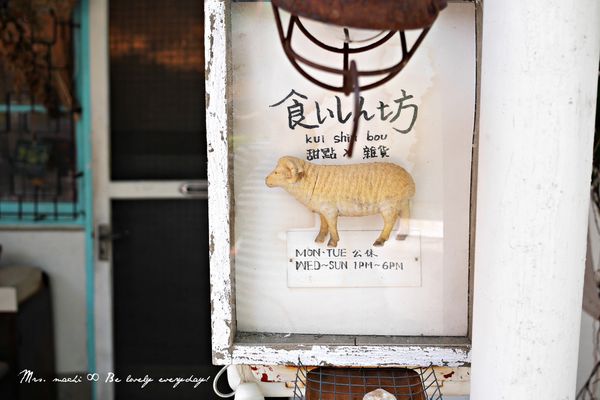 食いしん坊
kui shin bou
甜點 × 雜貨
MON・TUE 公休
WED~SUN 1PM~6PM
Mrs. machi ∞ Be lovely everyday!